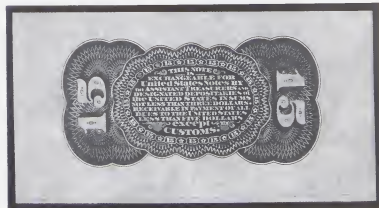 15
THIS NOTE
IS
EXCHANGEABLE FOR
United States Notes BY
THE ASSISTANT TREASURERS AND
DESIGNATED DEPOSITARIES OF
THE UNITED STATES IN SUMS
NOT LESS THAN THREE DOLLARS.
RECEIVABLE IN PAYMENT OF ALL
DUES TO THE UNITED STATES
LESS THAN FIVE DOLLARS
except
CUSTOMS.
15